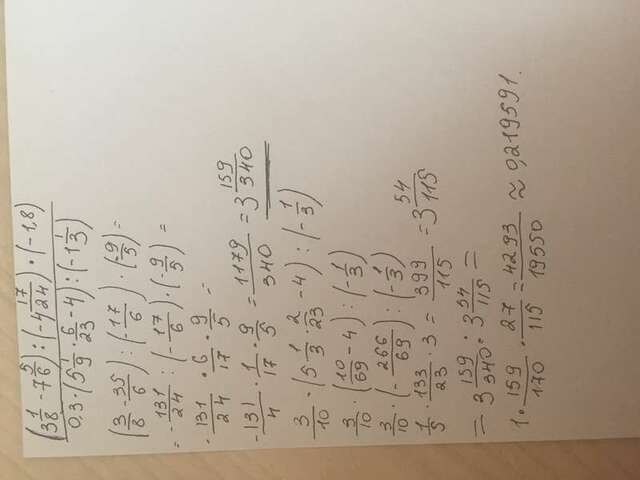 (3 1/8 - 7 5/6) : (-4 17/24) · (-1,8)
0,3 · (5 1/9 · 6/23 - 4) : (-1 1/3)
(3/8 - 35/6) : (-17/6) · (-9/5) =
= -131/24 : (-17/6) · (-9/5) =
-131/24 · 6/17 · 9/5 =
-131/4 · 1/17 · 9/5 = 1179/340 = 3 159/340
3/10 · (5 1/3 · 2/23 - 4) : (-1/3)
3/10 · (10/69 - 4) : (-1/3)
3/10 · (-266/69) : (-1/3)
1/5 · 133/23 · 3 = 399/115 = 3 54/115
= 3 159/340 · 3 54/115 =
1 · 159/170 · 27/115 = 4293/19550 ≈ 0,219591.